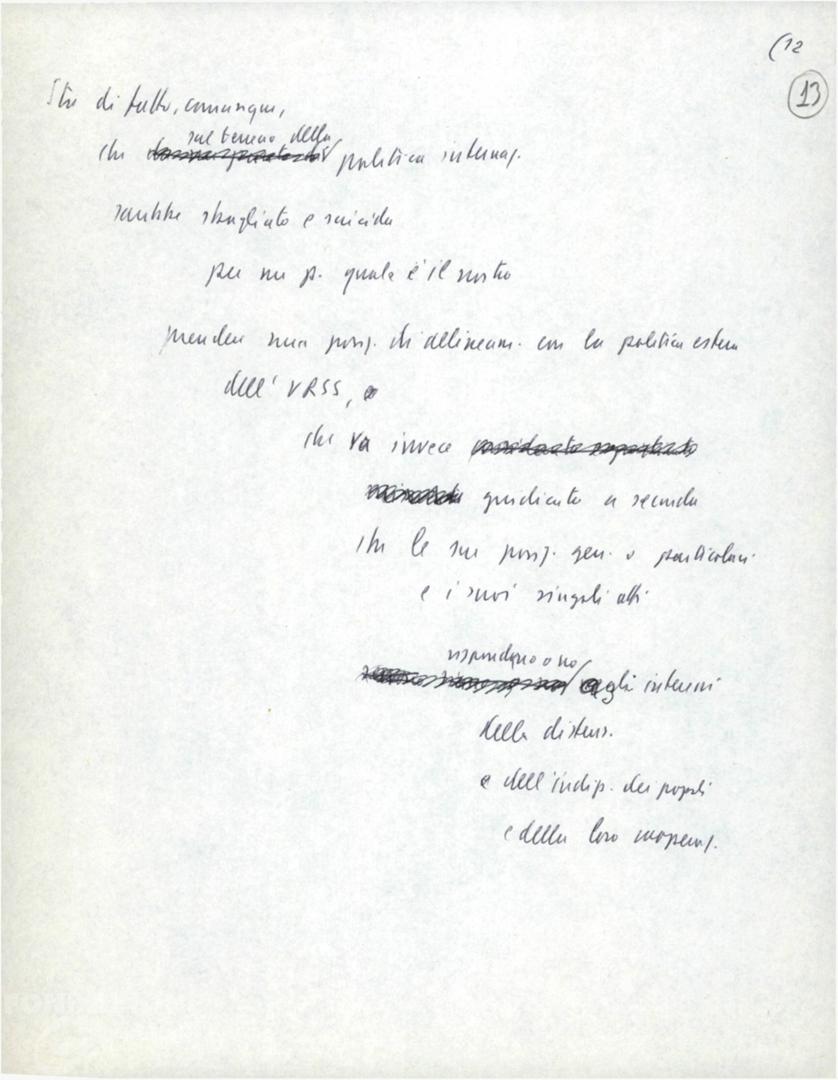 (12
13
Sta di fatto, comunque,
sul terreno della
che politica internaz.
sarebbe sbagliato e suicida
per un p. quale è il nostro
prender una posiz. di delineam. con la politica estera
dell'URSS,
che va invece
giudicata a seconda
che le sue posiz. gen. o particolari
e i suoi singoli atti
rispondono o no
agli interessi
della distens.
e dell'indip. dei popoli
e della loro cooperaz.